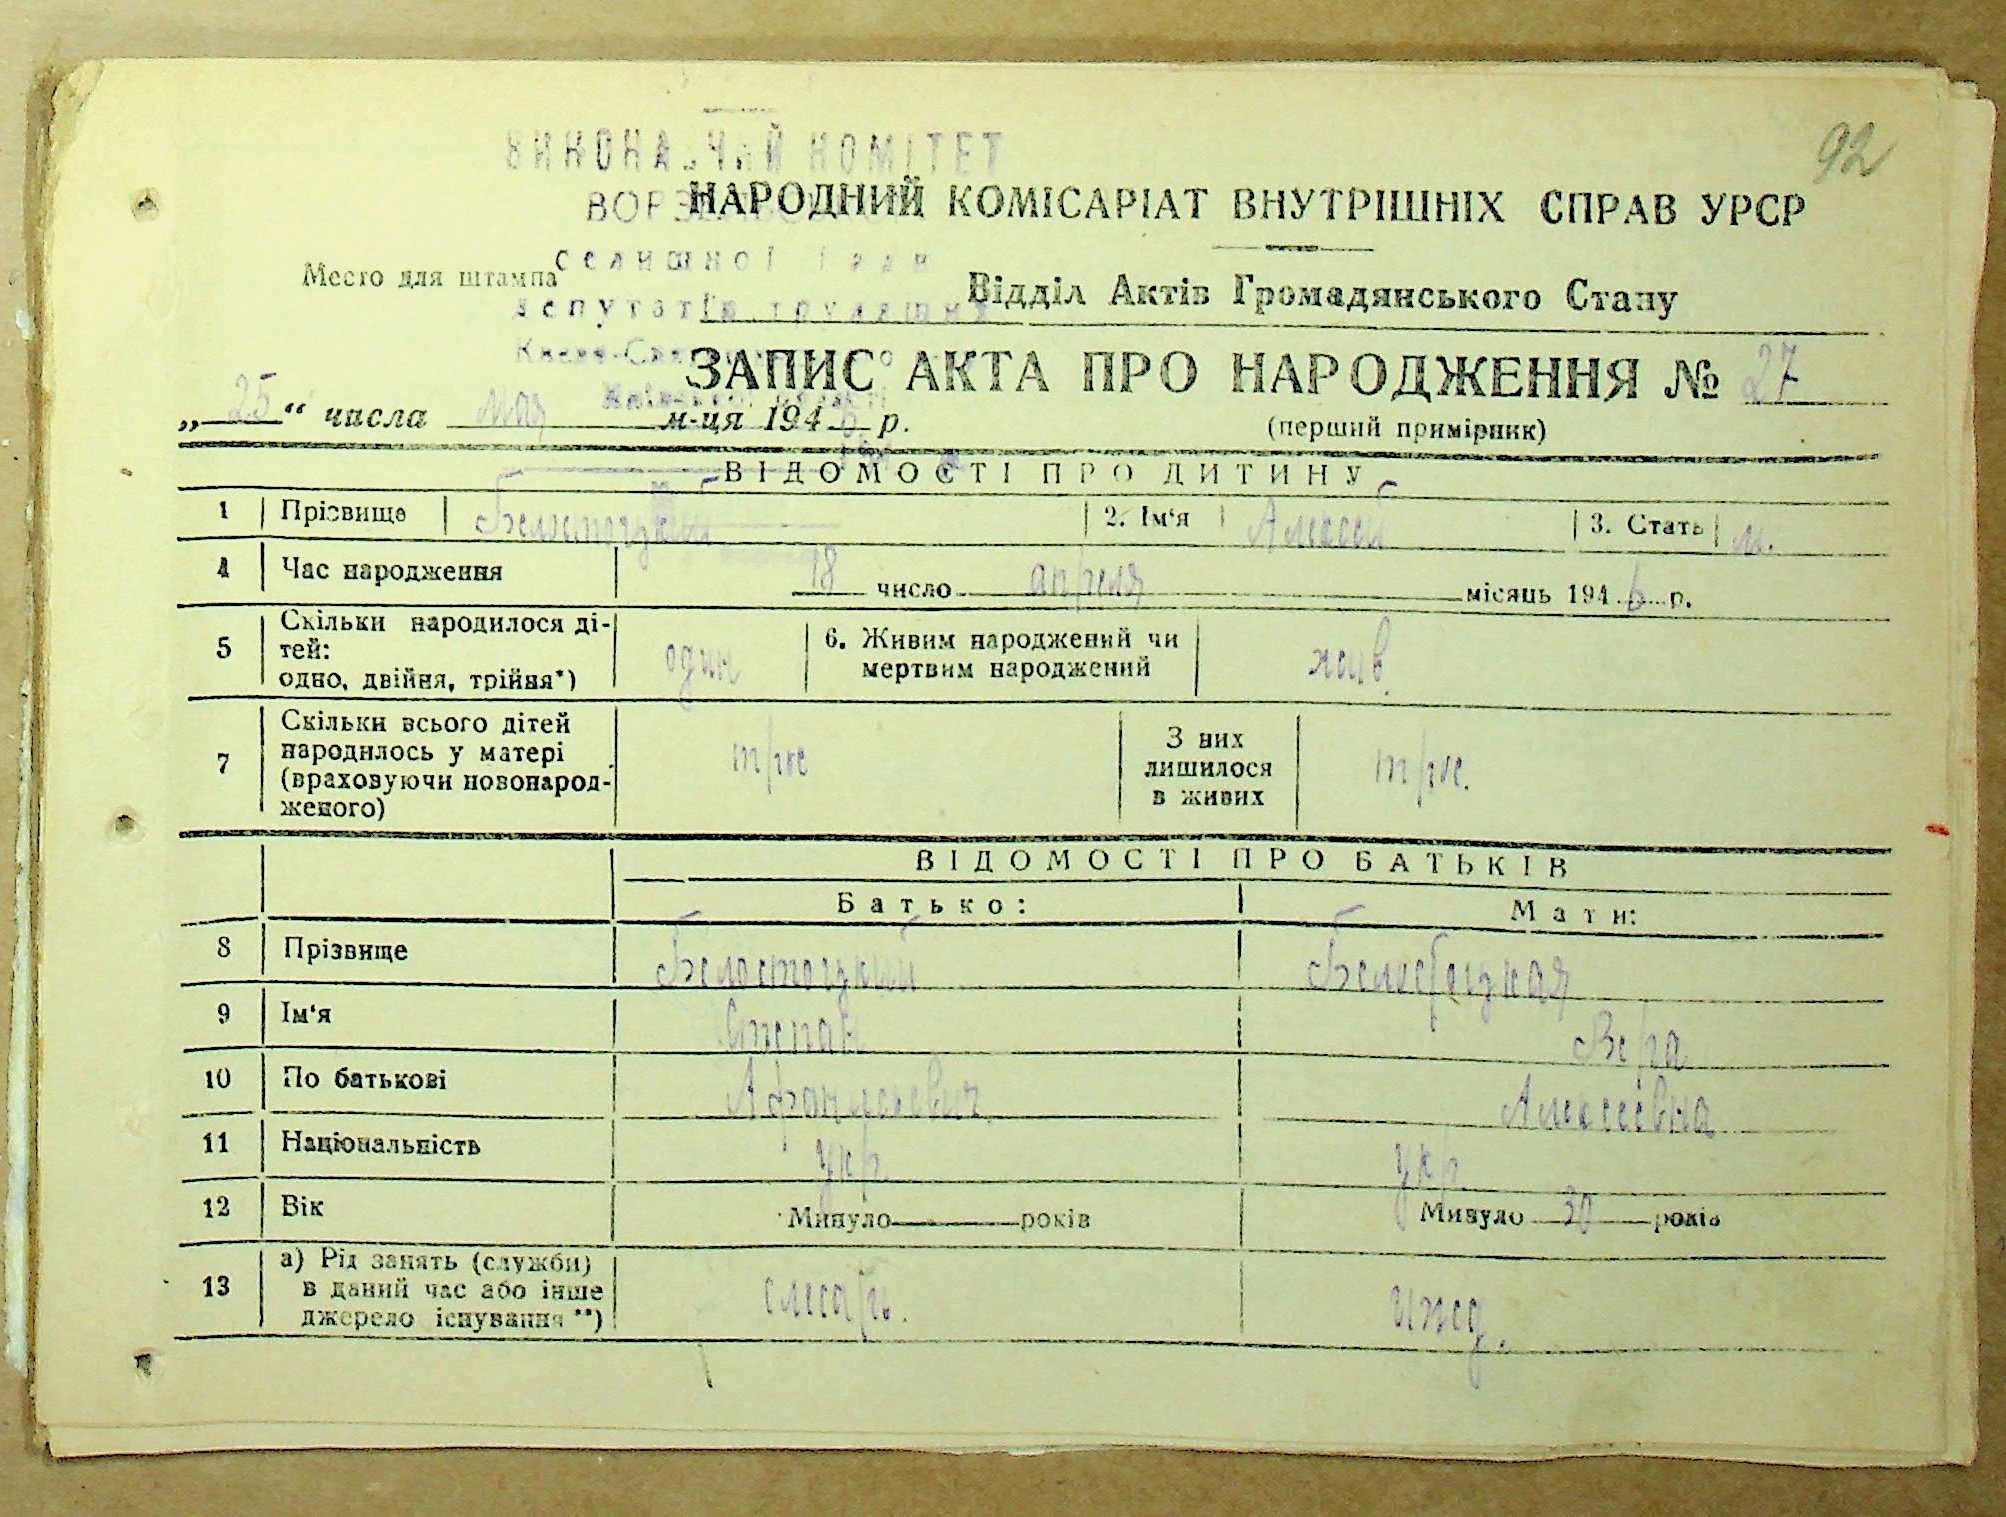 92
ВИКОНАВЧИЙ КОМІТЕТ
НАРОДНИЙ КОМІСАРІАТ ВНУТРІШНІХ СПРАВ УРСР
селищної Ради
Место для штампа
Відділ Актів Громадянського Стану
депутатів трудящих
ЗАПИС АКТА ПРО НАРОДЖЕННЯ № 27
„25“ числа мая м-ця 1946 р.
(перший примірник)
ВІДОМОСТІ ПРО ДИТИНУ
1 Прізвище Белостоцкий 2. Ім‘я Алексей 3. Стать м.
4 Час народження 18 число апреля місяць 1946 р.
5 Скільки народилося ді-
тей:
одно, двійня, трійня*) один
6. Живим народжений чи
мертвим народжений жив.
7 Скільки всього дітей
народилось у матері
(враховуючи новонарод-
женого) трое
З них
лишилося
в живих трое.
ВІДОМОСТІ ПРО БАТЬКІВ
Батько: Мати:
8 Прізвище Белостоцкий Белостоцкая
9 Ім‘я Степан Вера
10 По батькові Афанасьевич Алексеевна
11 Національність укр укр
12 Вік Минуло років Минуло 30 років
13 а) Рід занять (служби)
в даний час або інше
джерело існування **) слесарь. ижд.